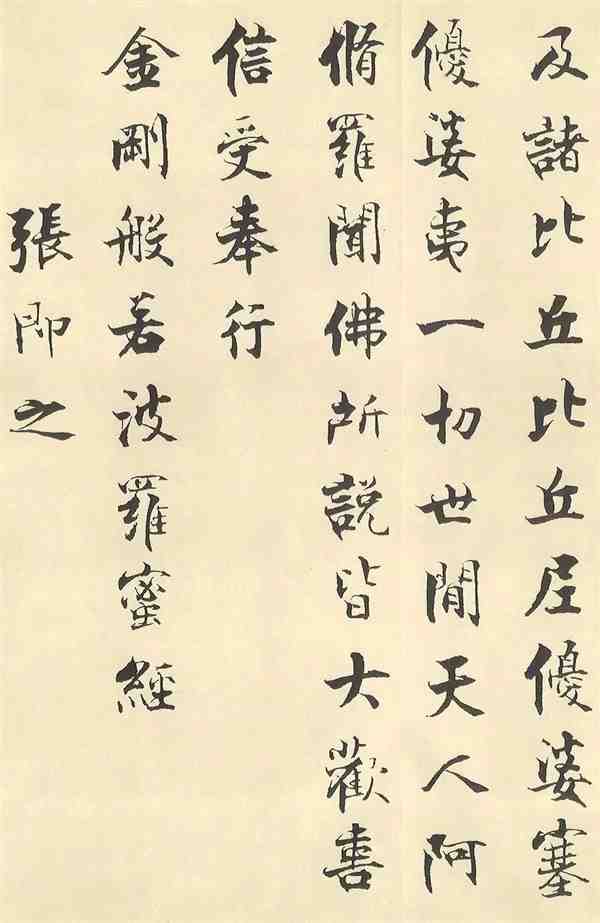 及諸比丘比丘尼優婆塞
優婆夷一切世間天人阿
脩羅聞佛所說皆大歡喜
信受奉行
金剛般若波羅蜜經
張即之